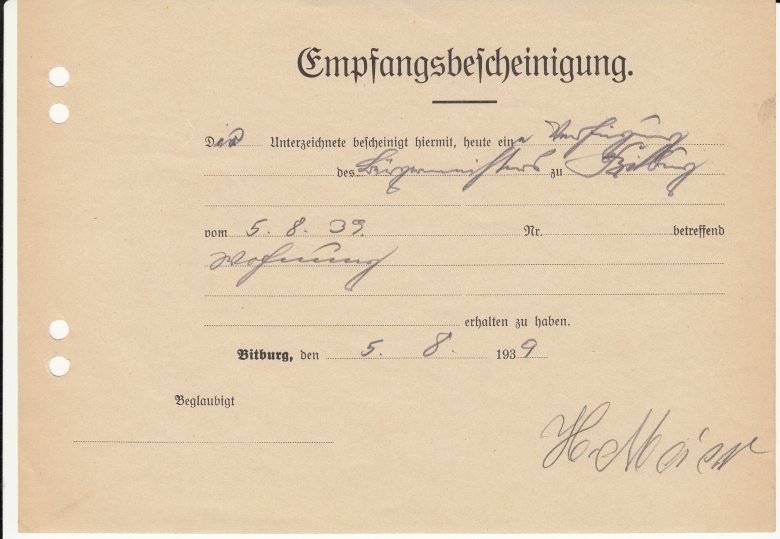 Empfangsbescheinigung.
Die Unterzeichnete bescheinigt hiermit, heute eine Verfügung
des Bürgermeisters zu Bitburg
vom 5. 8. 39. Nr. betreffend
Wohnung
erhalten zu haben.
Bitburg, den 5. 8. 1939
Beglaubigt
H. Meier